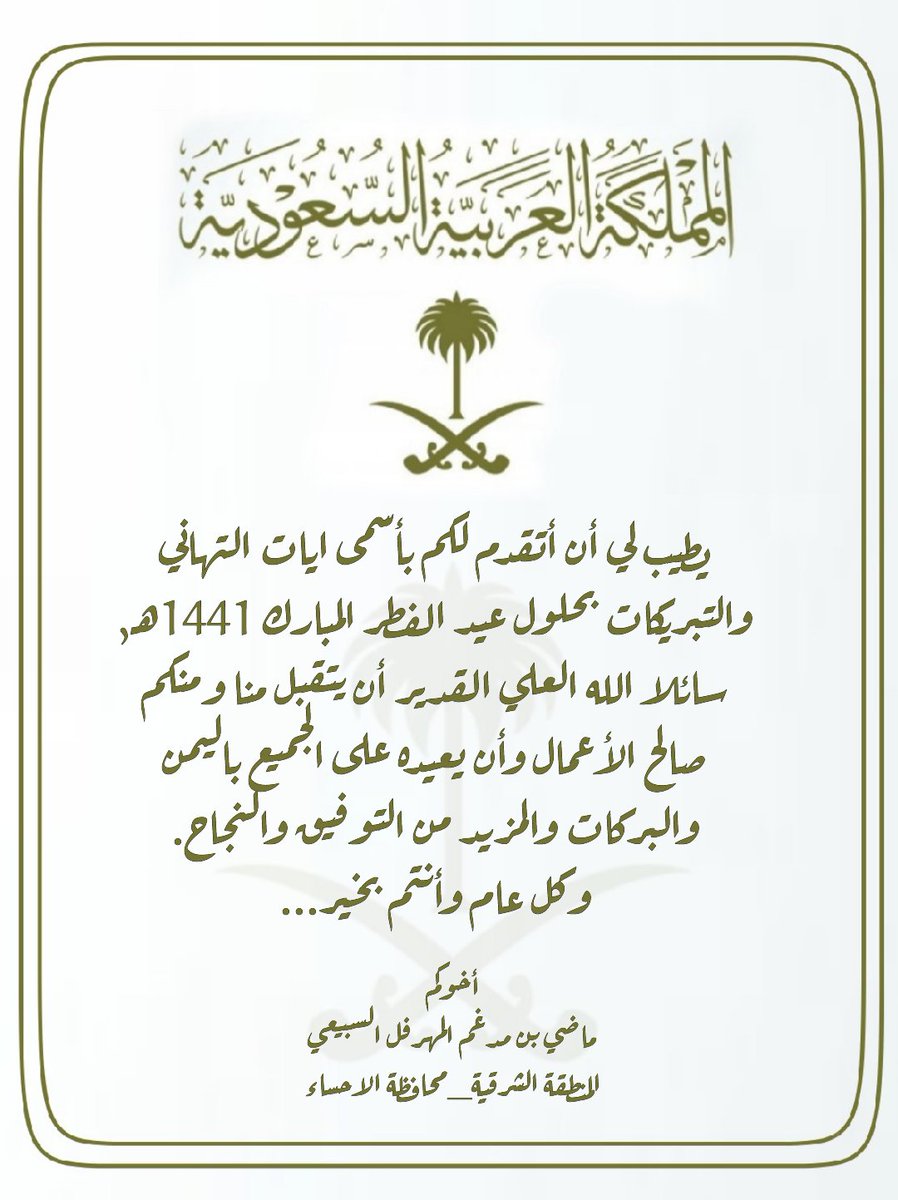 المملكة العربية السعودية
يطيب لي أن أتقدم لكم بأسمى ايات التهاني
والتبريكات بحلول عيد الفطر المبارك 1441هـ,
سائلا الله العلي القدير أن يتقبل منا ومنكم
صالح الأعمال وأن يعيده على الجميع باليمن
والبركات والمزيد من التوفيق والنجاح.
وكل عام وأنتم بخير...
أخوكم
ماضي بن مدغم المهرفل السبيعي
المنطقة الشرقية_محافظة الاحساء